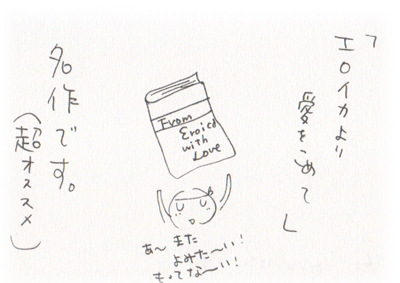 「エロイカより
愛をこめて」
From
Eroica
with
Love
名作です。
(超オススメ)
あ〜また
よみた〜い!
もってな〜い!